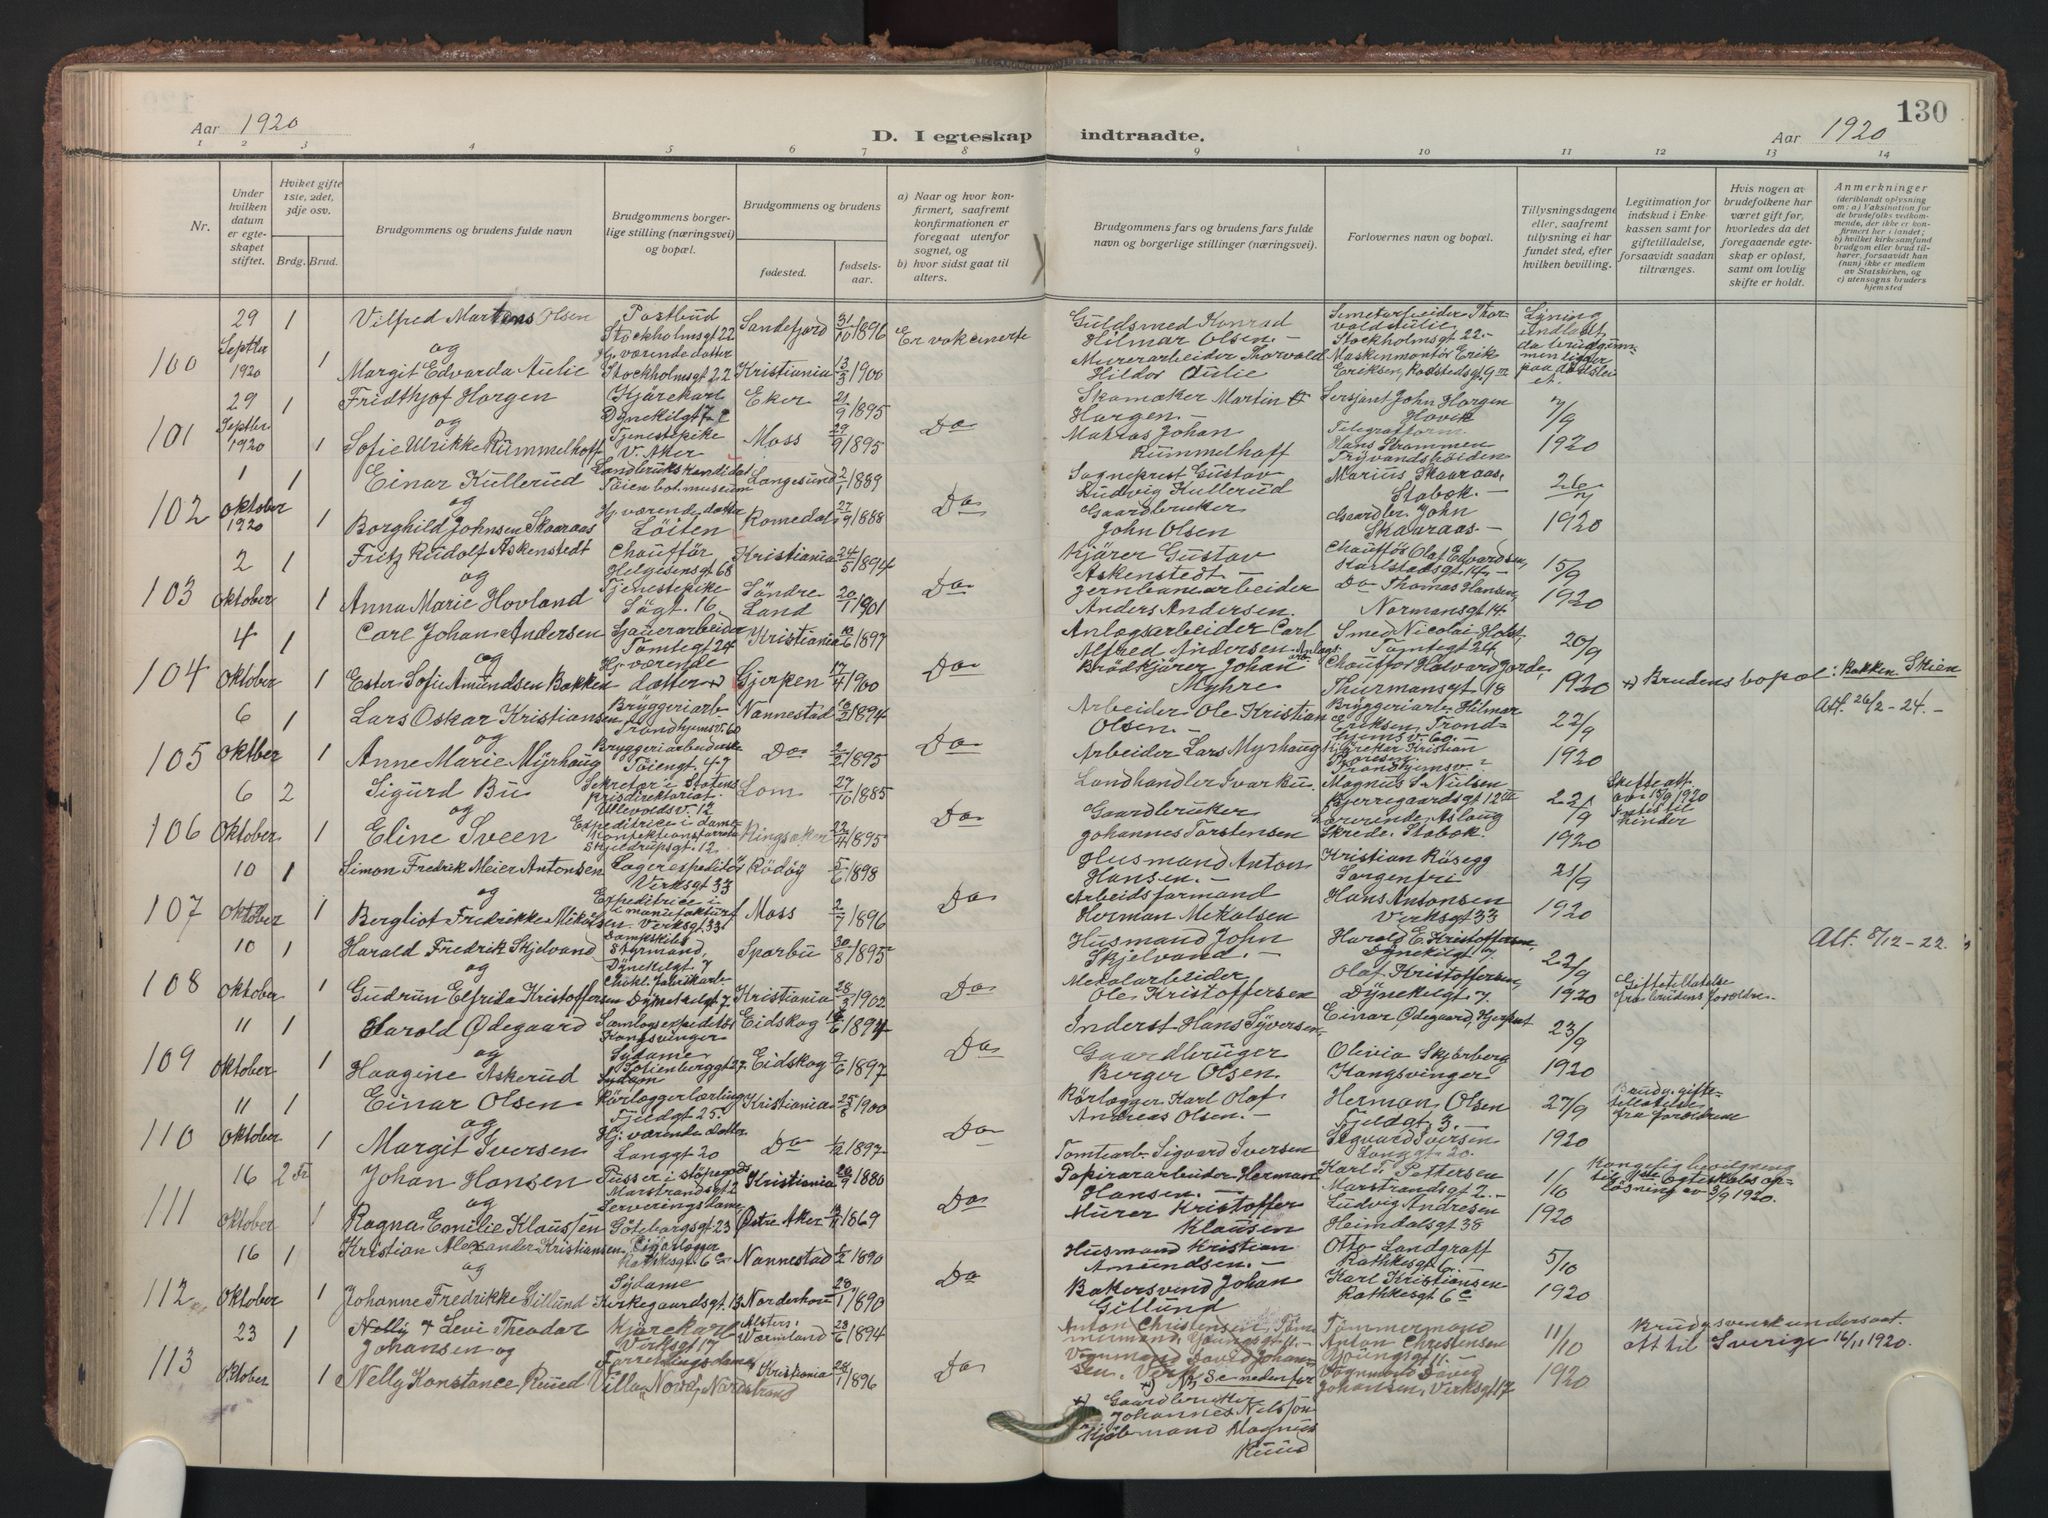 130
Aar 1920
D. I egteskap indtraadte.
Aar 1920
1 2 3 4 5 6 7 8 9 10 11 12 13 14
Nr.
Under hvilken datum er egteskapet stiftet.
Hviket gifte 1ste, 2det, 3dje osv.
Brdg. Brud.
Brudgommens og brudens fulde navn
Brudgommens borgerlige stilling (næringsvei) og bopæl.
Brudgommens og brudens
fødested.
fødselsaar.
a) Naar og hvor konfirmert, saafremt konfirmationen er foregaat utenfor sognet, og
b) hvor sidst gaat til alters.
Brudgommens fars og brudens fars fulde navn og borgerlige stillinger (næringsvei).
Forlovernes navn og bopæl.
Tillysningsdagene eller, saafremt tillysning ei har fundet sted, efter hvilken bevilling.
Legitimation for indskud i Enkekassen samt for giftetilladelse, forsaavidt saadan tiltrænges.
Hvis nogen av brudefolkene har været gift før, hvorledes da det foregaaende egteskap er opløst, samt om lovlig skifte er holdt.
Anmerkninger (deriblandt oplysning om: a) Vaksination for de brudefolks vedkommende, der ikke er konfirmert her i landet; b) hvilket kirkesamfund brudgom eller brud tilhører, forsaavidt han (hun) ikke er medlem av Statskirken, og c) utensogns bruders hjemsted
100
29 Septbr 1920
1 Vilfred Martens Olsen Postbud Stockholmsgt 22 Sandefjord 31/10 1896 Er vaksinerte
og
1 Margit Edvarda Aulie Hj. værende datter Stockholmsgt 22 Kristiania 13/3 1900
Guldsmed Konrad Hilmar Olsen.-
Murerarbeider Thorvald Hildor Aulie
Thorvald Aulie Stockholmsgt 22.-
Maskinmontør Erik Eriksen,
Lysning undlatt da brudgommen ligger paa
101
29 Septbr 1920
1 Fridthjof Horgen Kjørekarl Dynekilgt 7 Eker 21/9 1895 Do
og
1 Sofie Ulrikke Rummelhoff Tjenestepike V. Aker Moss 29/9 1895
Skomaker Martin Horgen.-
Matias Johan Rummelhoff
Sersjant John Horgen Hovik
Hans Strømmen Tryvandshøiden
7/9 1920
102
1 Oktober 1920
1 Einar Kullerud Landbrukskandidat Tøien bot. museum Langesund 2/1 1889 Do
og
1 Borghild Johnsen Skaaraas Hj. værende datter Løiten Romedal 27/9 1888
Sogneprest Gustav Ludvig Kullerud
Gaardbruker John Olsen
Marius Skaaraas, Stabæk.-
Gaardbr. John Skaaraas-
26/7 1920
103
2 Oktober
1 Fritz Rudolf Askenstedt Chauffør Helgesensgt 68 Kristiania 24/5 1894 Do
og
1 Anna Marie Hovland Tjenestepike Søgt. 16 Søndre Land 20/1 1901
Kjører Gustav Askenstedt-
Jernbanearbeider Anders Andersen.
Chauffør Olaf Edvardsen, Karlstadsgt. 14.-
Do Thomas Hansen, Normansgt 14.
15/9 1920
104
4 Oktober
1 Carl Johan Andersen Tomtegt 24 Kristiania 10/6 1897 Do
og
1 Ester Sofie Amundsen Bakken Hj. værende datter x) Gjerpen 17/4 1900
Anlægsarbeider Carl Alfred Andersen
Brødkjører Johan Myhre
Smed Nicolai Holst, Tomtegt 24
Chauffør Halvard Jorde, Thurmansgt 18
20/9 1920
x) Brudens bopæl: Bakken Skien
Att. 26/2-24.-
105
6 Oktber
1 Lars Oskar Kristiansen Bryggeriarb. Trondhjemsv. 60 Nannestad 10/2 1894 Do
og
1 Anne Marie Myrhaug Bryggeriarbeiderske Tøiengt. 47 Do 2/2 1895
Arbeider Ole Kristian Olsen.-
Arbeider Lars Myrhaug
Bryggeriarb. Hilmar Eriksen, Trondhjemsv. 60.-
Kjørekar Kristian Thoresen Trondhjemsv.
22/9 1920
106
6 Oktober
2 Sigurd Bu Sekretær i Statens prisdirektorat. Ullevoldsv. 12 Lom 27/10 1885 Do
og
1 Eline Sveen Expeditrice i dame-konfektionsforretn. Skjeldrupsgt. 12 Ringsaker 22/4 1895
Landhandler Ivar Bu.
Gaardbruker Johannes Torstensen
Magnus S. Nielsen Bjerregaardsgt 12 III
Lærerinde Aslaug Skrede. Stabæk.
22/9 1920
Skifteatt. av 15/9 1920 intet til hinder
107
10 Oktober
1 Simon Fredrik Meier Antonsen Lagerexpeditør Verksgt 33 Rödöy 5/6 1898 Do
og
1 Bergliot Fredrikke Mikalsen Expeditrice i manufakturf. Verksgt 33 Moss 2/7 1896
Husmand Anton Hansen.-
Arbeidsformand Herman Mikalsen
Kristian Røsegg Sorgenfri
Hans Antonsen Verksgt 33
21/9 1920
108
10 Oktober
1 Harald Fredrik Skjelvand Dampskibs Styrmand, Dynekilgt 7 Sparbu 30/8 1895 Do
og
1 Gudrun Elfrida Kristoffersen Chokl. fabrikarb. Dynekilgt 7 Kristiania 28/3 1902
Husmand John Skjelvand.-
Metalarbeider Ole Kristoffersen
Harald E. Kristoffersen, Dynekilgt. 7
Olaf Kristoffersen, Dynekilgt 7.
22/9 1920
Giftetillatelse fra brudens forældre.-
Att. 8/12-22.
109
11 Oktober
1 Harald Ødegaard Kongsvinger Eidskog 1894 Do
og
1 Haagine Askerud Sydame Tollenberggt 27 Eidskog 9/6 1897
Inderst Hans Syversen,
Gaardbruger Berger Olsen.
Einar Ødegaard,
Olivia Skjørberg Kongsvinger
23/9 1920
110
11 Oktober
1 Einar Olsen Rørlæggerlærling Fjeldgt 25. Kristiania 25/8 1900 Do
og
1 Margit Iversen Hj. værende datter Langgt 20 Do 1/12 1897
Rørlægger Karl Olaf Andreas Olsen.-
Tomtearb. Sigvard Iversen
Herman Olsen Fjeldgt 3.-
Sigvard Iversen Langgt 20.
27/9 1920
Brudg. giftetillatelse fra forældrene
111
16 Oktober
2 Fr Johan Hansen Pusser i støpegods Marstrandsgt 2 Kristiania 20/9 1880 Do
og
1 Ragna Emilie Klaussen Serveringsdame Göteborgsgt 23 Østre Aker 1869
Papirarbeider Herman Hansen.-
Murer Kristoffer Klausen
Karl T. Pettersen Marstrandsgt 2.-
Ludvig Andresen Heimdalsgt 38
1/10 1920
Kongelig bevilgning til egteskabsopløsning av 3/9 1920.
112
16 Oktober
1 Kristian Alexander Kristiansen Rathkesgt. 6c Nannestad 6/2 1890 Do
og
1 Johanne Fredrikke Gillund Sydame Kirkegaardsgt. 13 Norderhov 28/1 1890
Husmand Kristian Amundsen.-
Bakersvend Johan Gillund
Otto Landgraff Rathkesgt 6.-
Karl Kristiansen Rathkesgt 6 c
5/10 1920
113
23 Oktober
1 Nelly x Levi Theodor Johansen Kjørekarl Verksgt 17 Alster: Wærmland 23/6 1894 Do
og
1 Nelly Konstance Ruud Forretningsdame Villa Nord, Nordstrand Kristiania 28/1 1896
Anton Christensen Tømmermand, Youngsgt 11.-
Vognmand David Johansen, Verk
x) Se nedenfor
x) Gaardbruker Johannes Nilsson
Kjøbmand Magnus Ruud
Tømmermand Anton Christensen Youngsgt 11.-
Vognmand David Johansen, Verksgt 17
11/10 1920
Brudg. svensk undersaat.
Att til Sverige 16/11 1920.